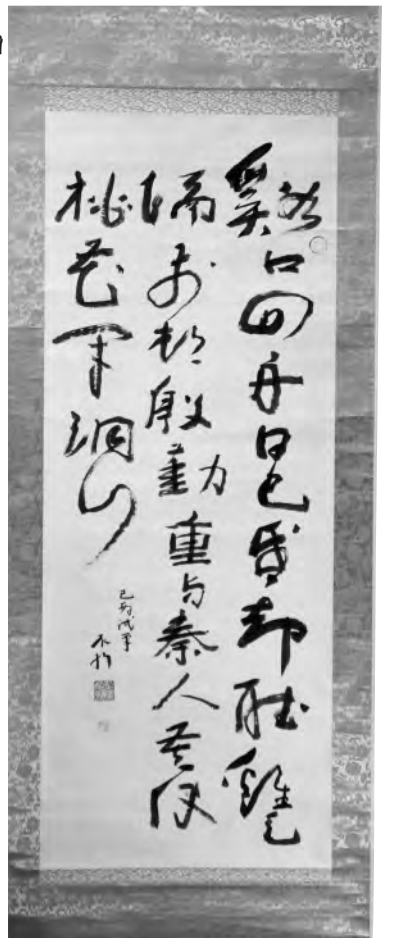 谿口回舟日已昏却聽雞犬
隔前村殷勤重与秦人莫使
桃花閉洞門